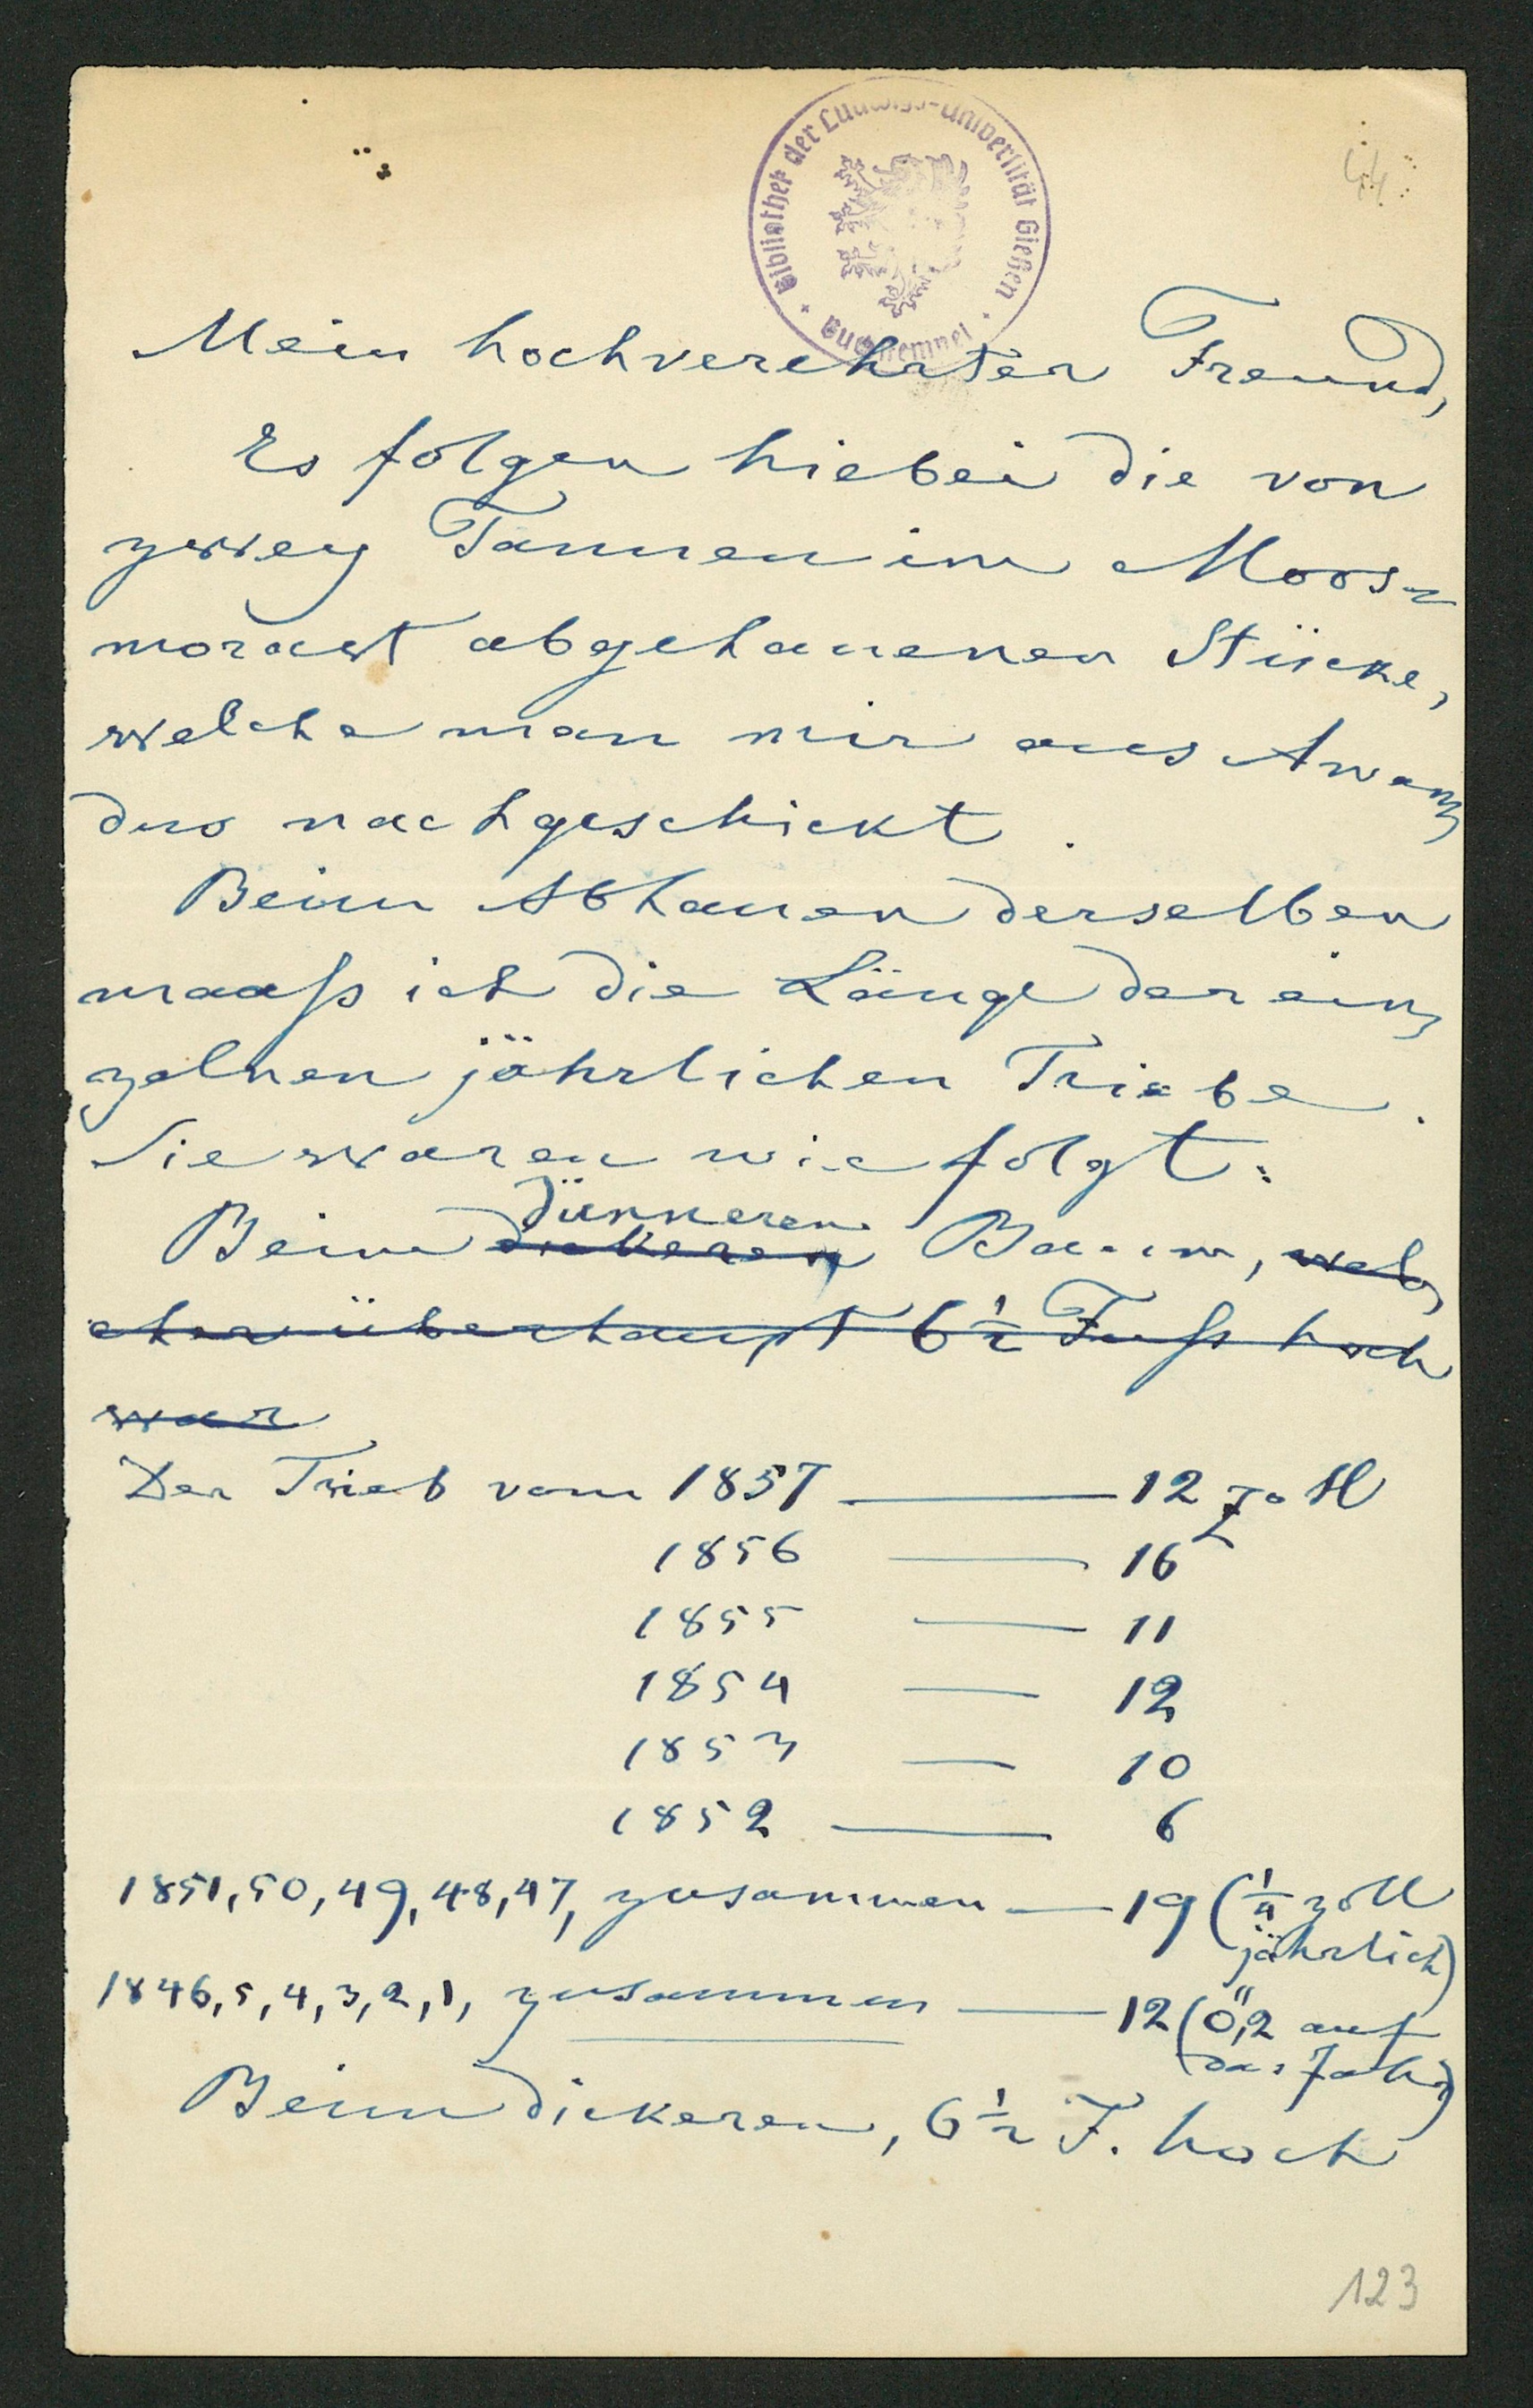 Bibliothek der Ludwigs-Universität Gießen
44
Mein hochverehrter Freund,
Es folgen hiebei die von
zwey Tannen im Moos-
morast abgehauenen Stücke,
welche man mir aus Awan-
dus nachgeschickt.
Beim Abhauen derselben
maaß ich die Länge der ein-
zelnen jährlichen Triebe.
Sie waren wie folgt:
dünneren
Beim dickeren Baum, wel-
cher überhaupt 6 1/2 Fuß hoch
war
Der Trieb vom 1857 — 12 Zoll
1856 — 16
1855 — 11
1854 — 12
1853 — 10
1852 — 6
1851, 50, 49, 48, 47, zusammen — 19 (1/4 zoll
jährlich)
1846, 5, 4, 3, 2, 1, zusammen — 12 (0",2 auf
das Jahr)
Beim dickeren, 6 1/2 F. hoch
123